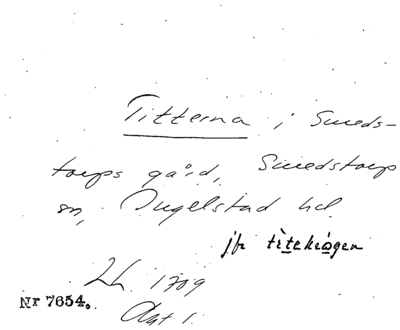 Titterna i Smeds-
torps gård, Smedstorps
sn, Ingelstad hd.
jfr titekrogen
Lh. 1709
Akt 1.
Nr 7654.